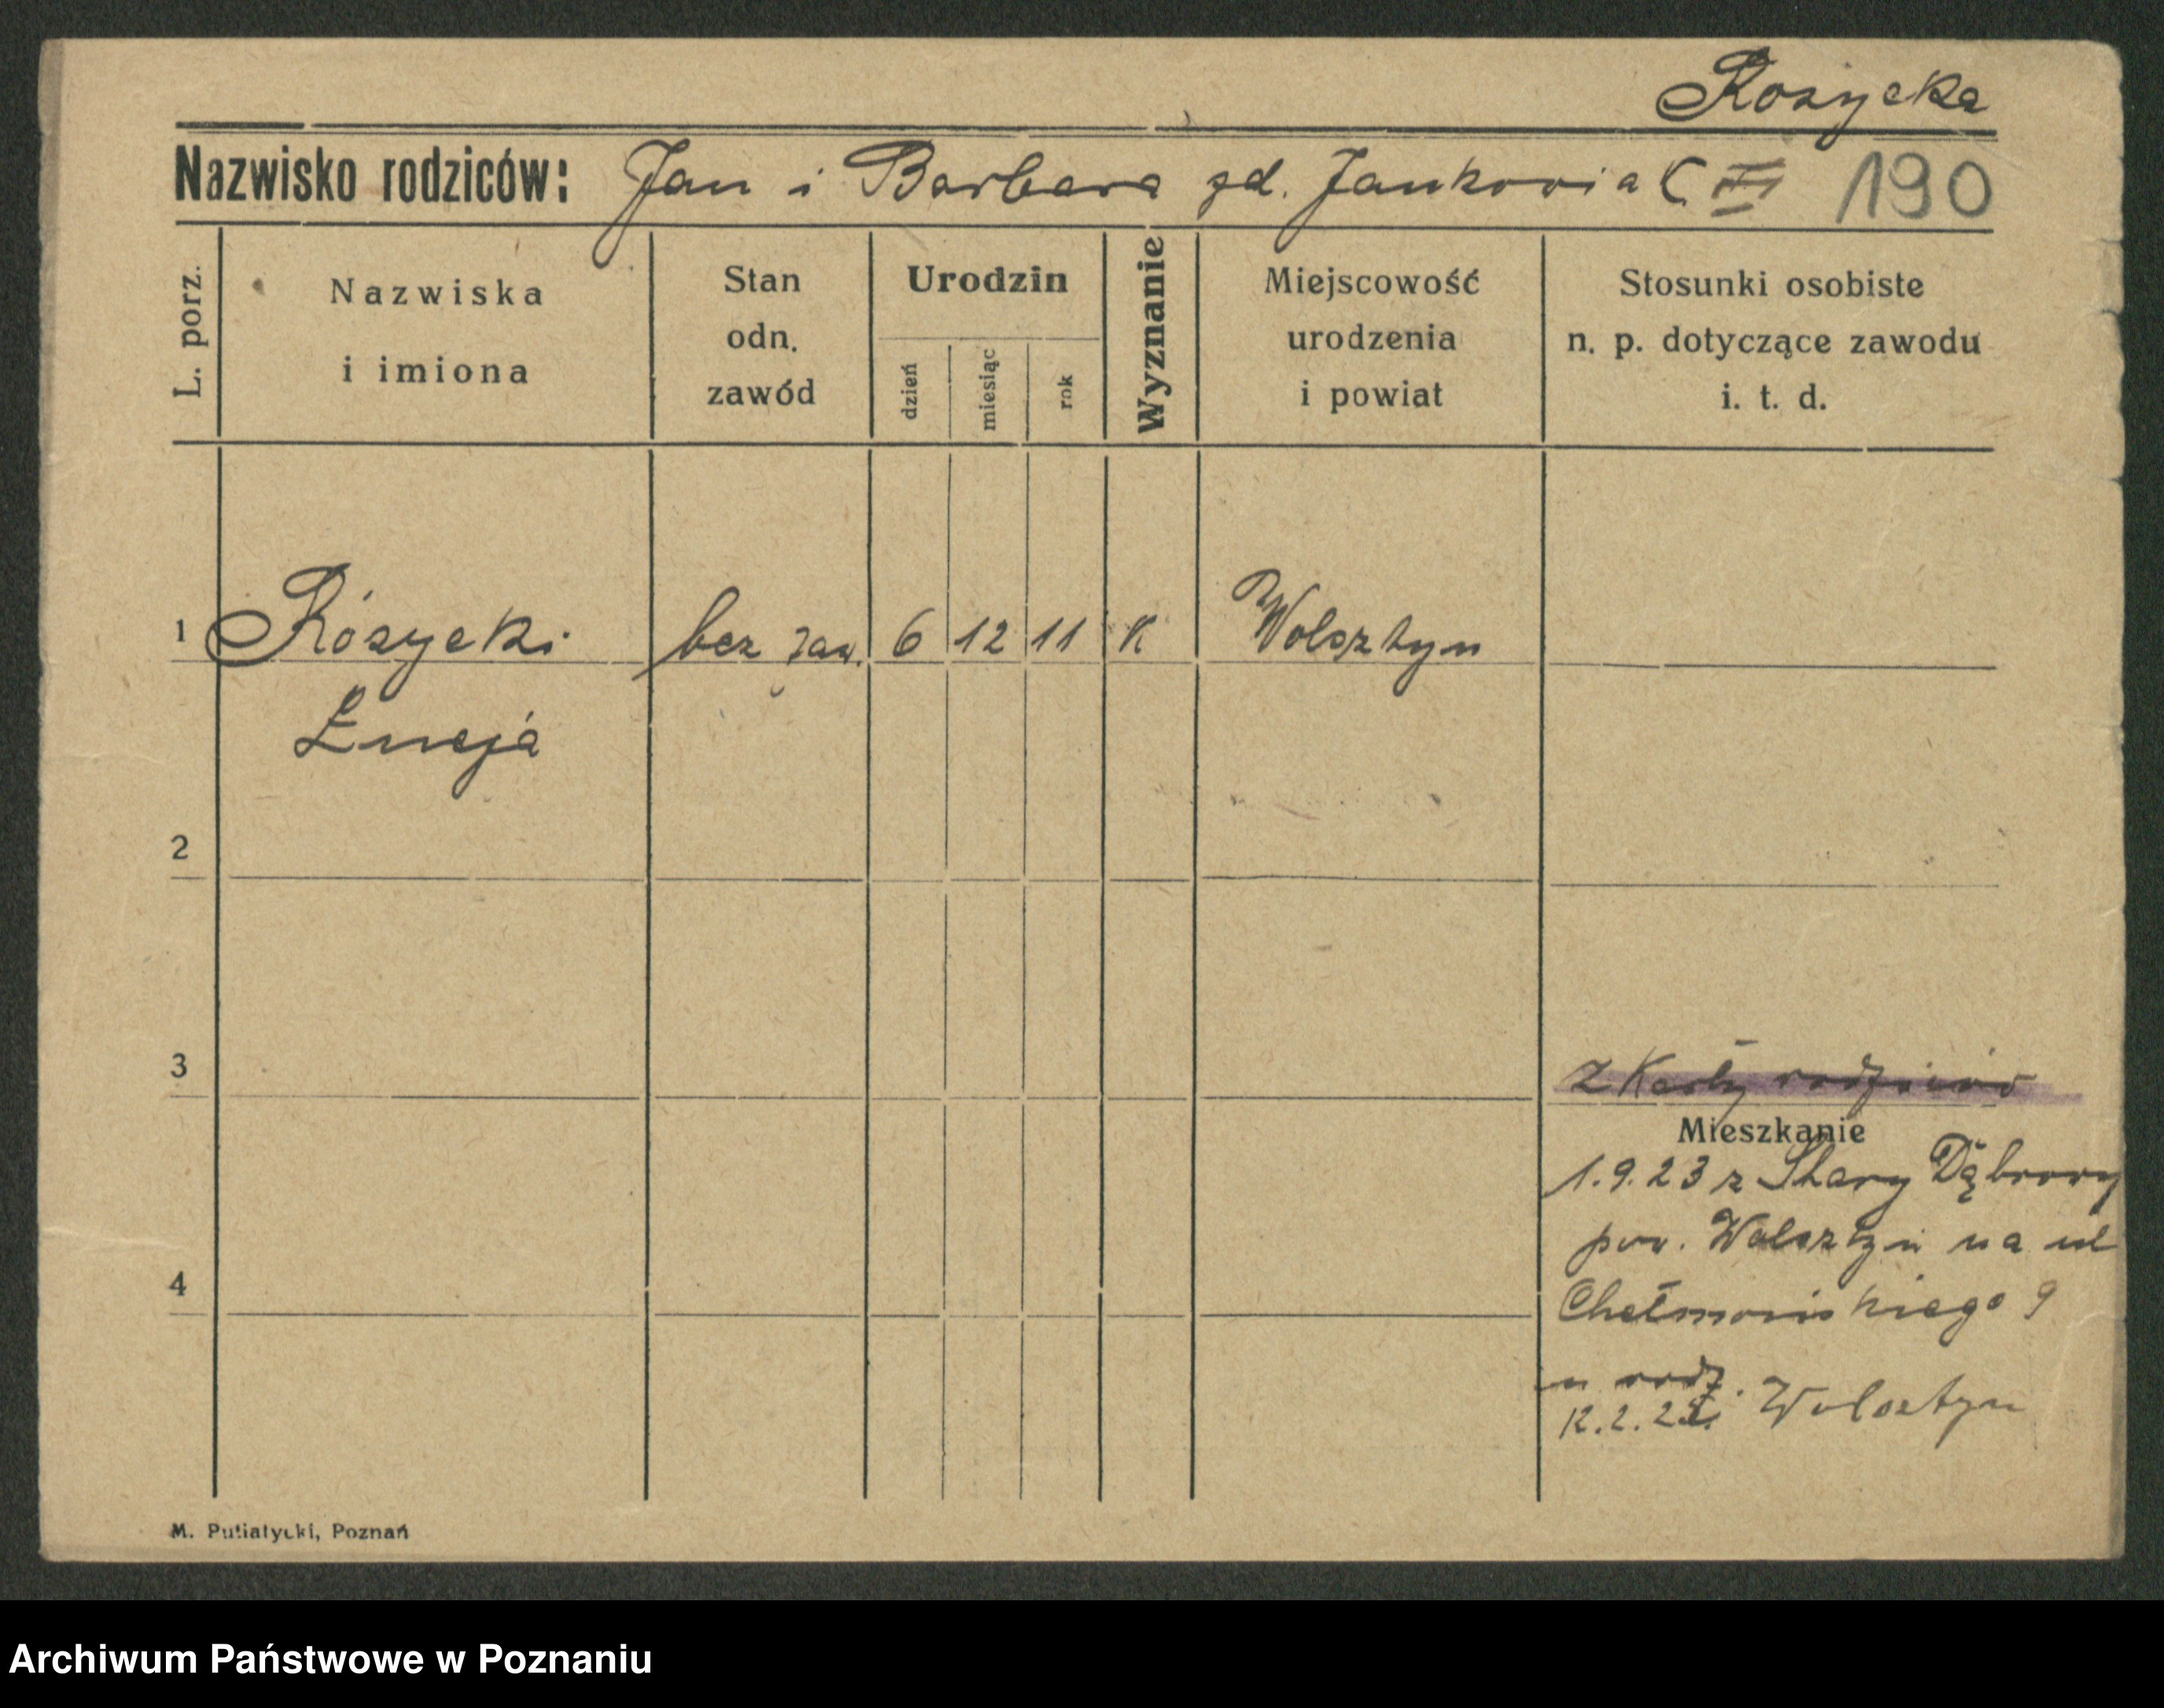 Rozycka
Nazwisko rodziców: Jan i Barbara zd. Jankowiak VI 190
L. porz.
Nazwiska
i imiona
Stan
odn.
zawód
Urodzin
dzień
miesiąc
rok
Wyznanie
Miejscowość
urodzenia
i powiat
Stosunki osobiste
n. p. dotyczące zawodu
i. t. d.
1 Rózycki bez zaw. 6 12 11 K Wolsztyn
Łucja
2
3
z Karty rodziców
Mieszkanie
1.9.23 z Stary Dąbrowy
pow. Wolsztyn na ul
4
Chełmońskiego 9
u rodz.
12.2. Wolsztyn
M. Putiatycki, Poznań
Archiwum Państwowe w Poznaniu